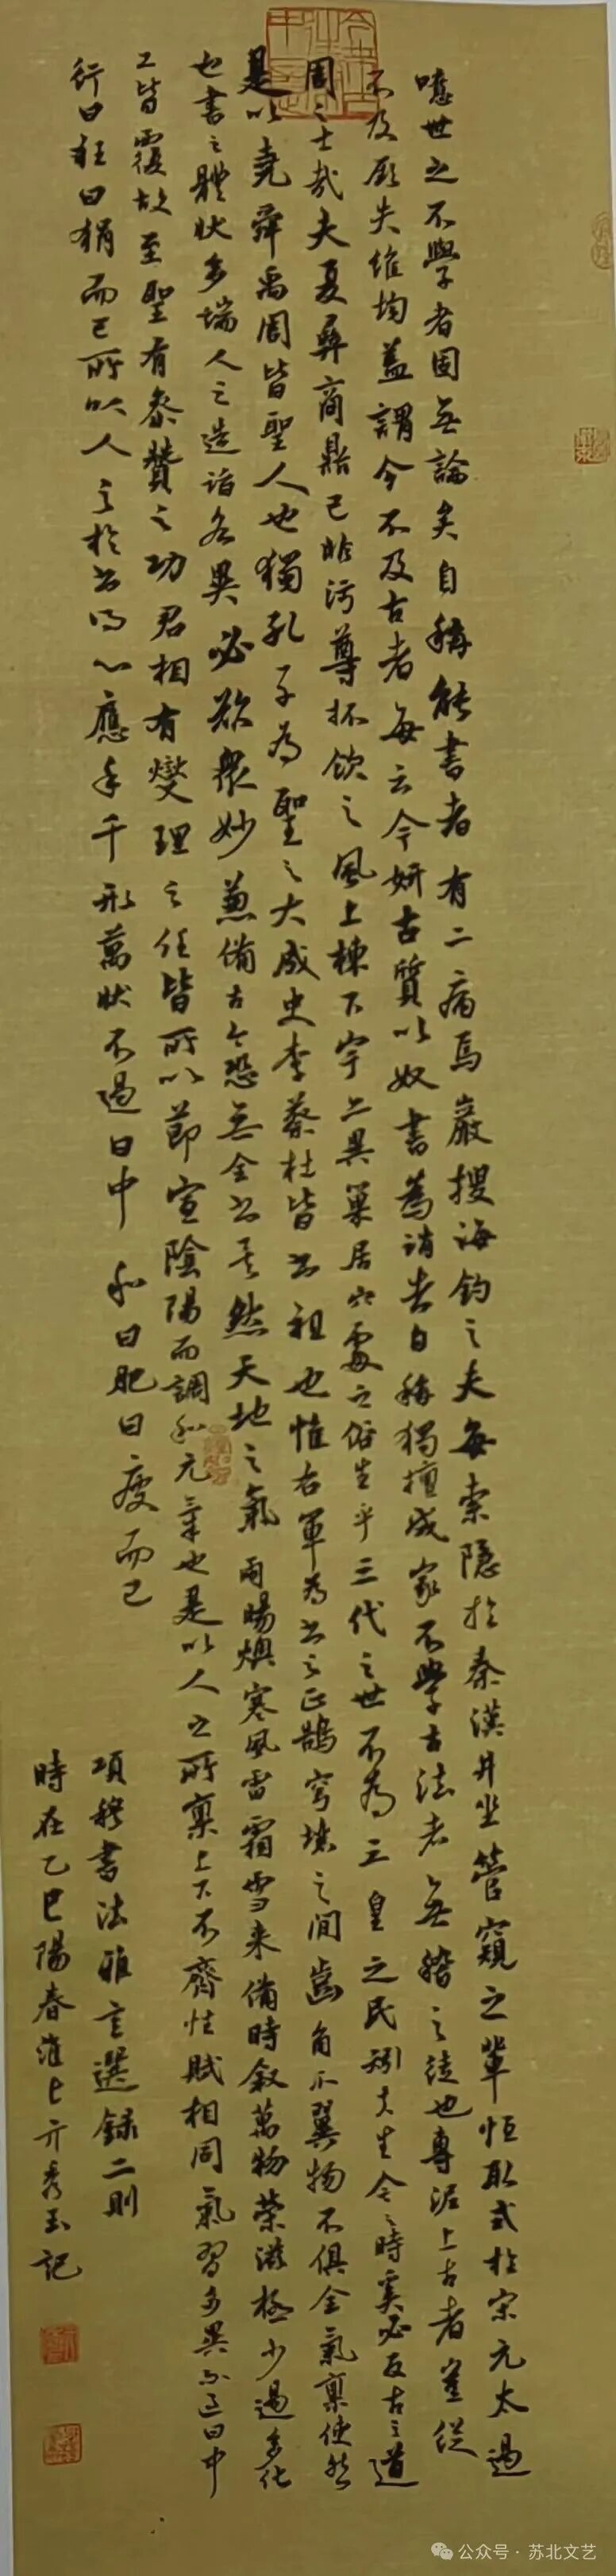 噫世之不學者固無論矣自稱能書者有二病焉巖搜海釣之夫每索隱於秦漢井坐管窺之輩恒取式於宋元太過
不及厥失維均蓋謂今不及古者每云今妍古質以奴書為誚者自稱獨擅成家不學古法者無稽之徒也專泥上古者豈從
周之士哉夫夏彝商鼎已非污尊抔飲之風上棟下宇亦異巢居穴處之俗生乎三代之世不為三皇之民矧夫生今之時奚必反古之道
是以堯舜禹周皆聖人也獨孔子為聖之大成史李蔡杜皆書祖也惟右軍為書之正鵠穹壤之間齒角爪翼物不俱全氣稟使然
也書之體狀多端人之造詣各異必欲眾妙兼備古今恐無全書矣然天地之氣雨暘燠寒風雷霜雪來備時敘萬物榮滋極少過多化
工皆覆故至聖有參贊之功君相有燮理之任皆所以節宣陰陽而調和元氣也是以人之所稟上下不齊性賦相同氣習多異不過曰中
行曰狂曰狷而已所以人之於書得心應手千形萬狀不過曰中和曰肥曰瘦而已
項穆書法雅言選録二則
時在乙巳陽春淮上亓秀玉記
公众号·苏北文艺